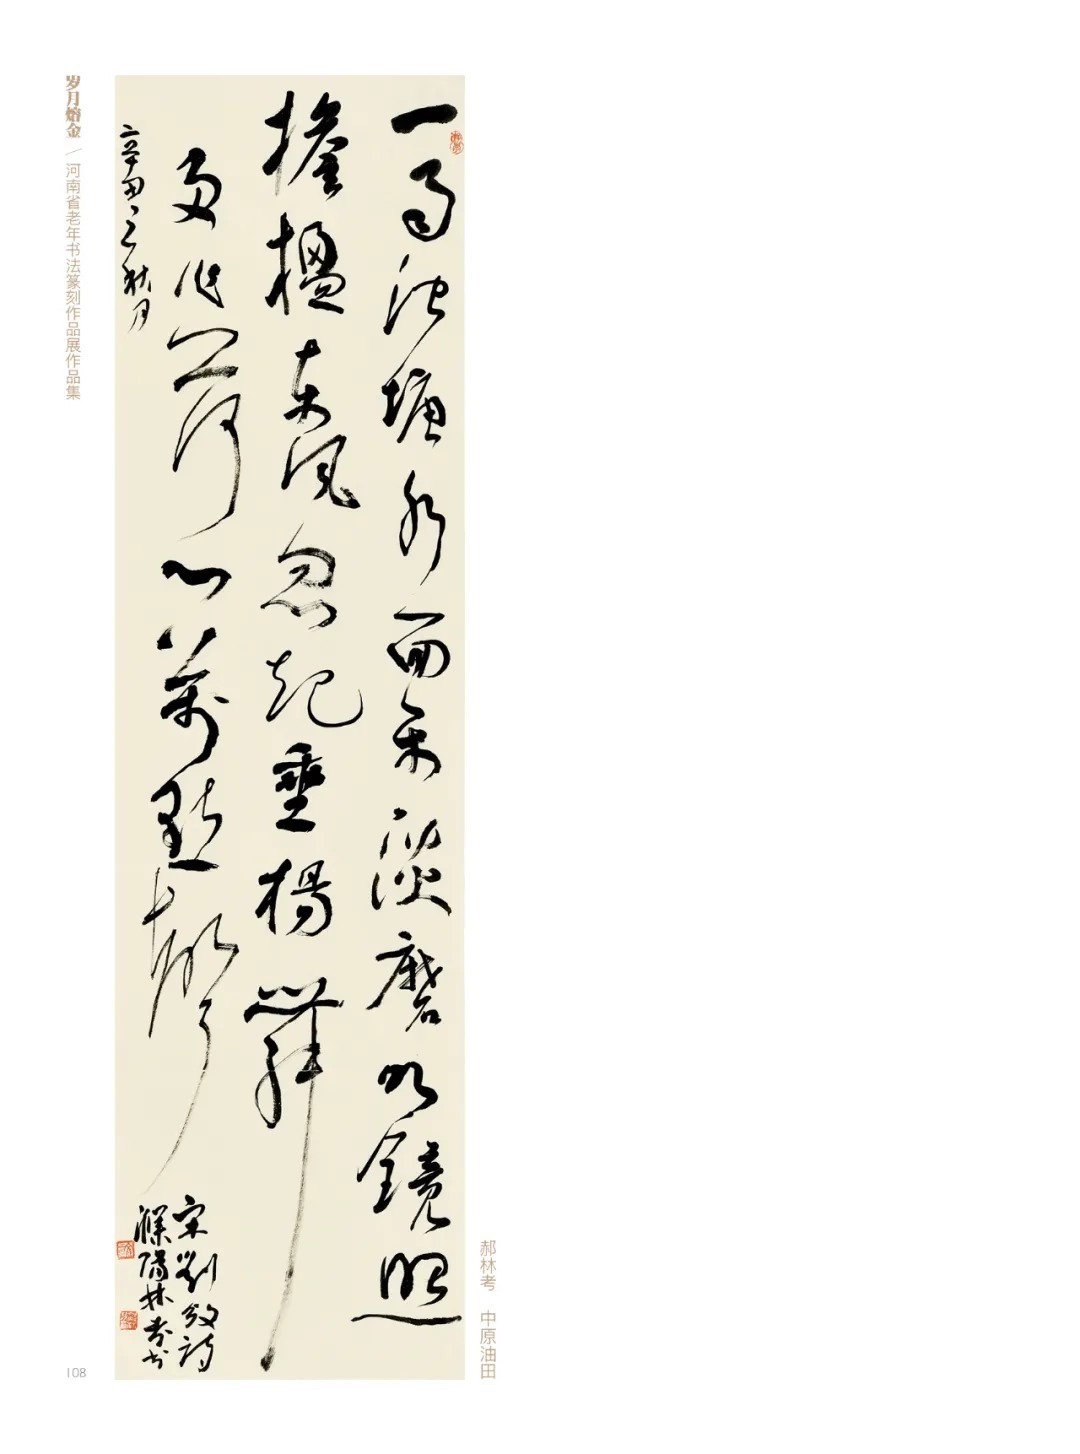 一雨池塘水面平淡磨明鏡照
檐楹東風忽起垂楊舞
更作荷心萬點聲
宋劉攽詩
辛丑秋月
濮陽林考书
郝林考 中原油田
岁月熔金／河南省老年书法篆刻作品展作品集
108